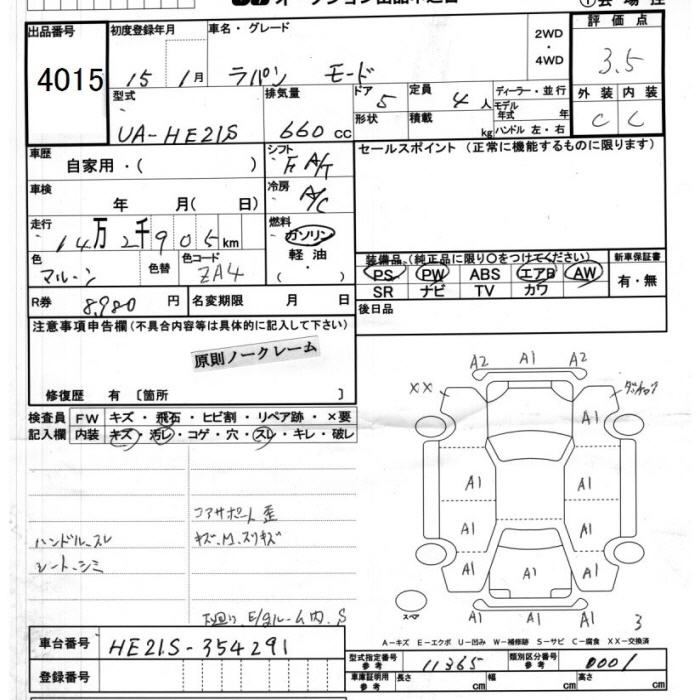 オークション出品申込書
①会場控
出品番号
4015
初度登録年月
15 1月
車名・グレード
ラパン モード
2WD
・
4WD
評価点
3.5
外装 内装
C C
型式
UA-HE21S
排気量
660 cc
ドア 5
形状
定員 4 人
積載 kg
ディーラー・並行
モデル年式 年
ハンドル 左・右
車歴
自家用・( )
シフト
F A/T
冷房
A/C
セールスポイント (正常に機能するものに限ります)
車検
年 月( 日)
走行
14万2千905km
燃料
ガソリン
軽油
( ・ )
色
マルーン
色替
色コード
ZA4
装備品 (純正品に限り○をつけてください)
PS PW ABS エアB AW
SR ナビ TV カワ
新車保証書
有・無
R券 8,980 円
名変期限 月 日
後日品
注意事項申告欄(不具合内容等は具体的に記入して下さい)
原則ノークレーム
修復歴 有 〔箇所 〕
検査員記入欄
FW キズ・飛石・ヒビ割・リペア跡・×要
内装 キズ・汚レ・コゲ・穴・スレ・キレ・破レ
コアサポート歪
キズ、M、スリキズ
ハンドル、スレ
シート、シミ
下廻り、E/gルーム内、S
A2 A1 A2
XX
A1
A1 A1
A1 A1
A1 A1 A1
A1
スペア
3
A−キズ E−エクボ U−凹み W−補修跡 S−サビ C−腐食 XX−交換済
車台番号 HE21S-354291
登録番号
型式指定番号参考 11365
類別区分番号参考 0001
車庫証明用参考 長さ cm 幅 cm 高さ cm